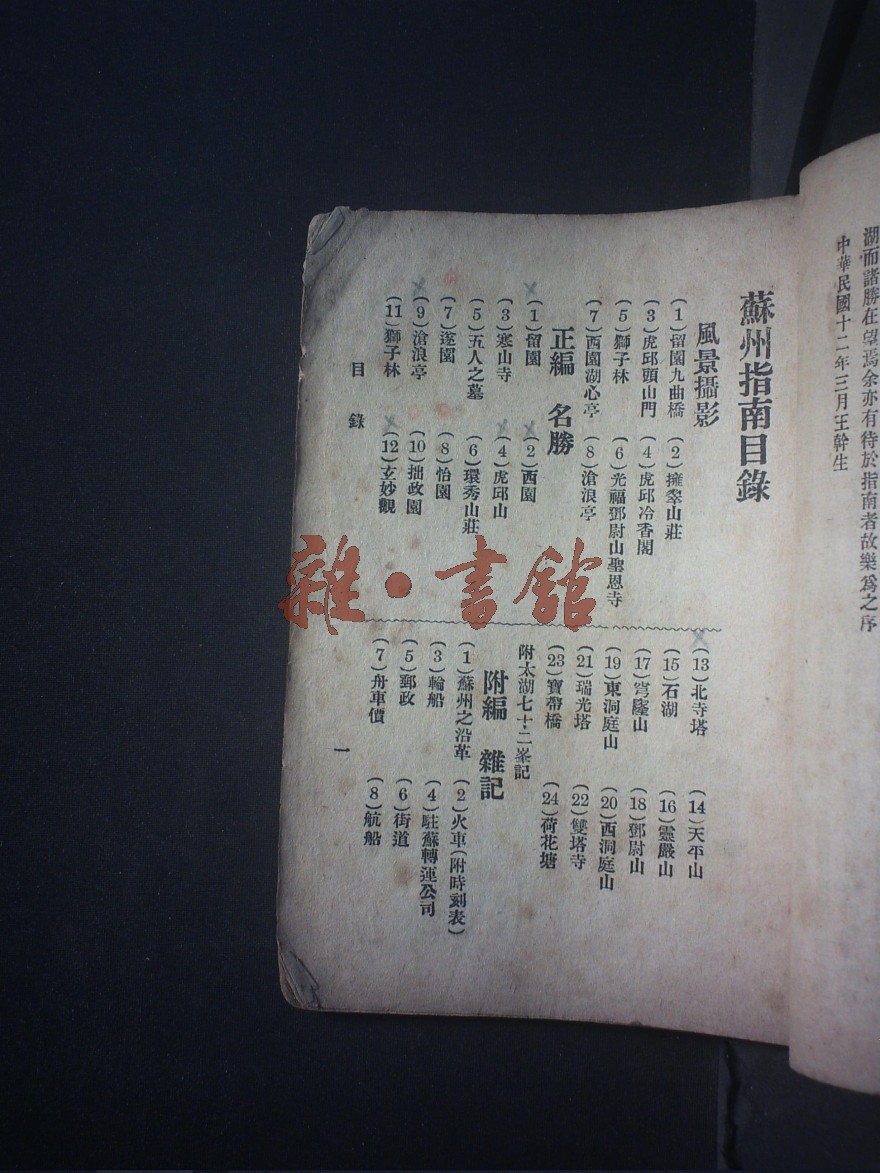 湖而諸勝在望焉余亦有待於指南者故樂為之序
中華民國十二年三月王幹生
蘇州指南目錄
風景攝影
(1)留園九曲橋 (2)擁翠山莊
(3)虎邱頭山門 (4)虎邱冷香閣
(5)獅子林 (6)光福鄧尉山聖恩寺
(7)西園湖心亭 (8)滄浪亭
正編 名勝
(1)留園 (2)西園
(3)寒山寺 (4)虎邱山
(5)五人之墓 (6)環秀山莊
(7)遂園 (8)怡園
(9)滄浪亭 (10)拙政園
(11)獅子林 (12)玄妙觀
(13)北寺塔 (14)天平山
(15)石湖 (16)靈巖山
(17)穹窿山 (18)鄧尉山
(19)東洞庭山 (20)西洞庭山
(21)瑞光塔 (22)雙塔寺
(23)寶帶橋 (24)荷花塘
附太湖七十二峯記
附編 雜記
(1)蘇州之沿革 (2)火車(附時刻表)
(3)輪船 (4)駐蘇轉運公司
(5)郵政 (6)街道
(7)舟車價 (8)航船
目錄
一
雜·書館